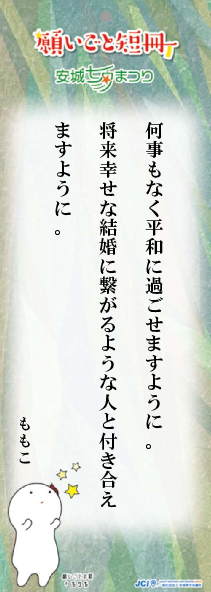 願いごと短冊
安城七夕まつり
何事もなく平和に過ごせますように。
将来幸せな結婚に繋がるような人と付き合え
ますように。
ももこ
JCI